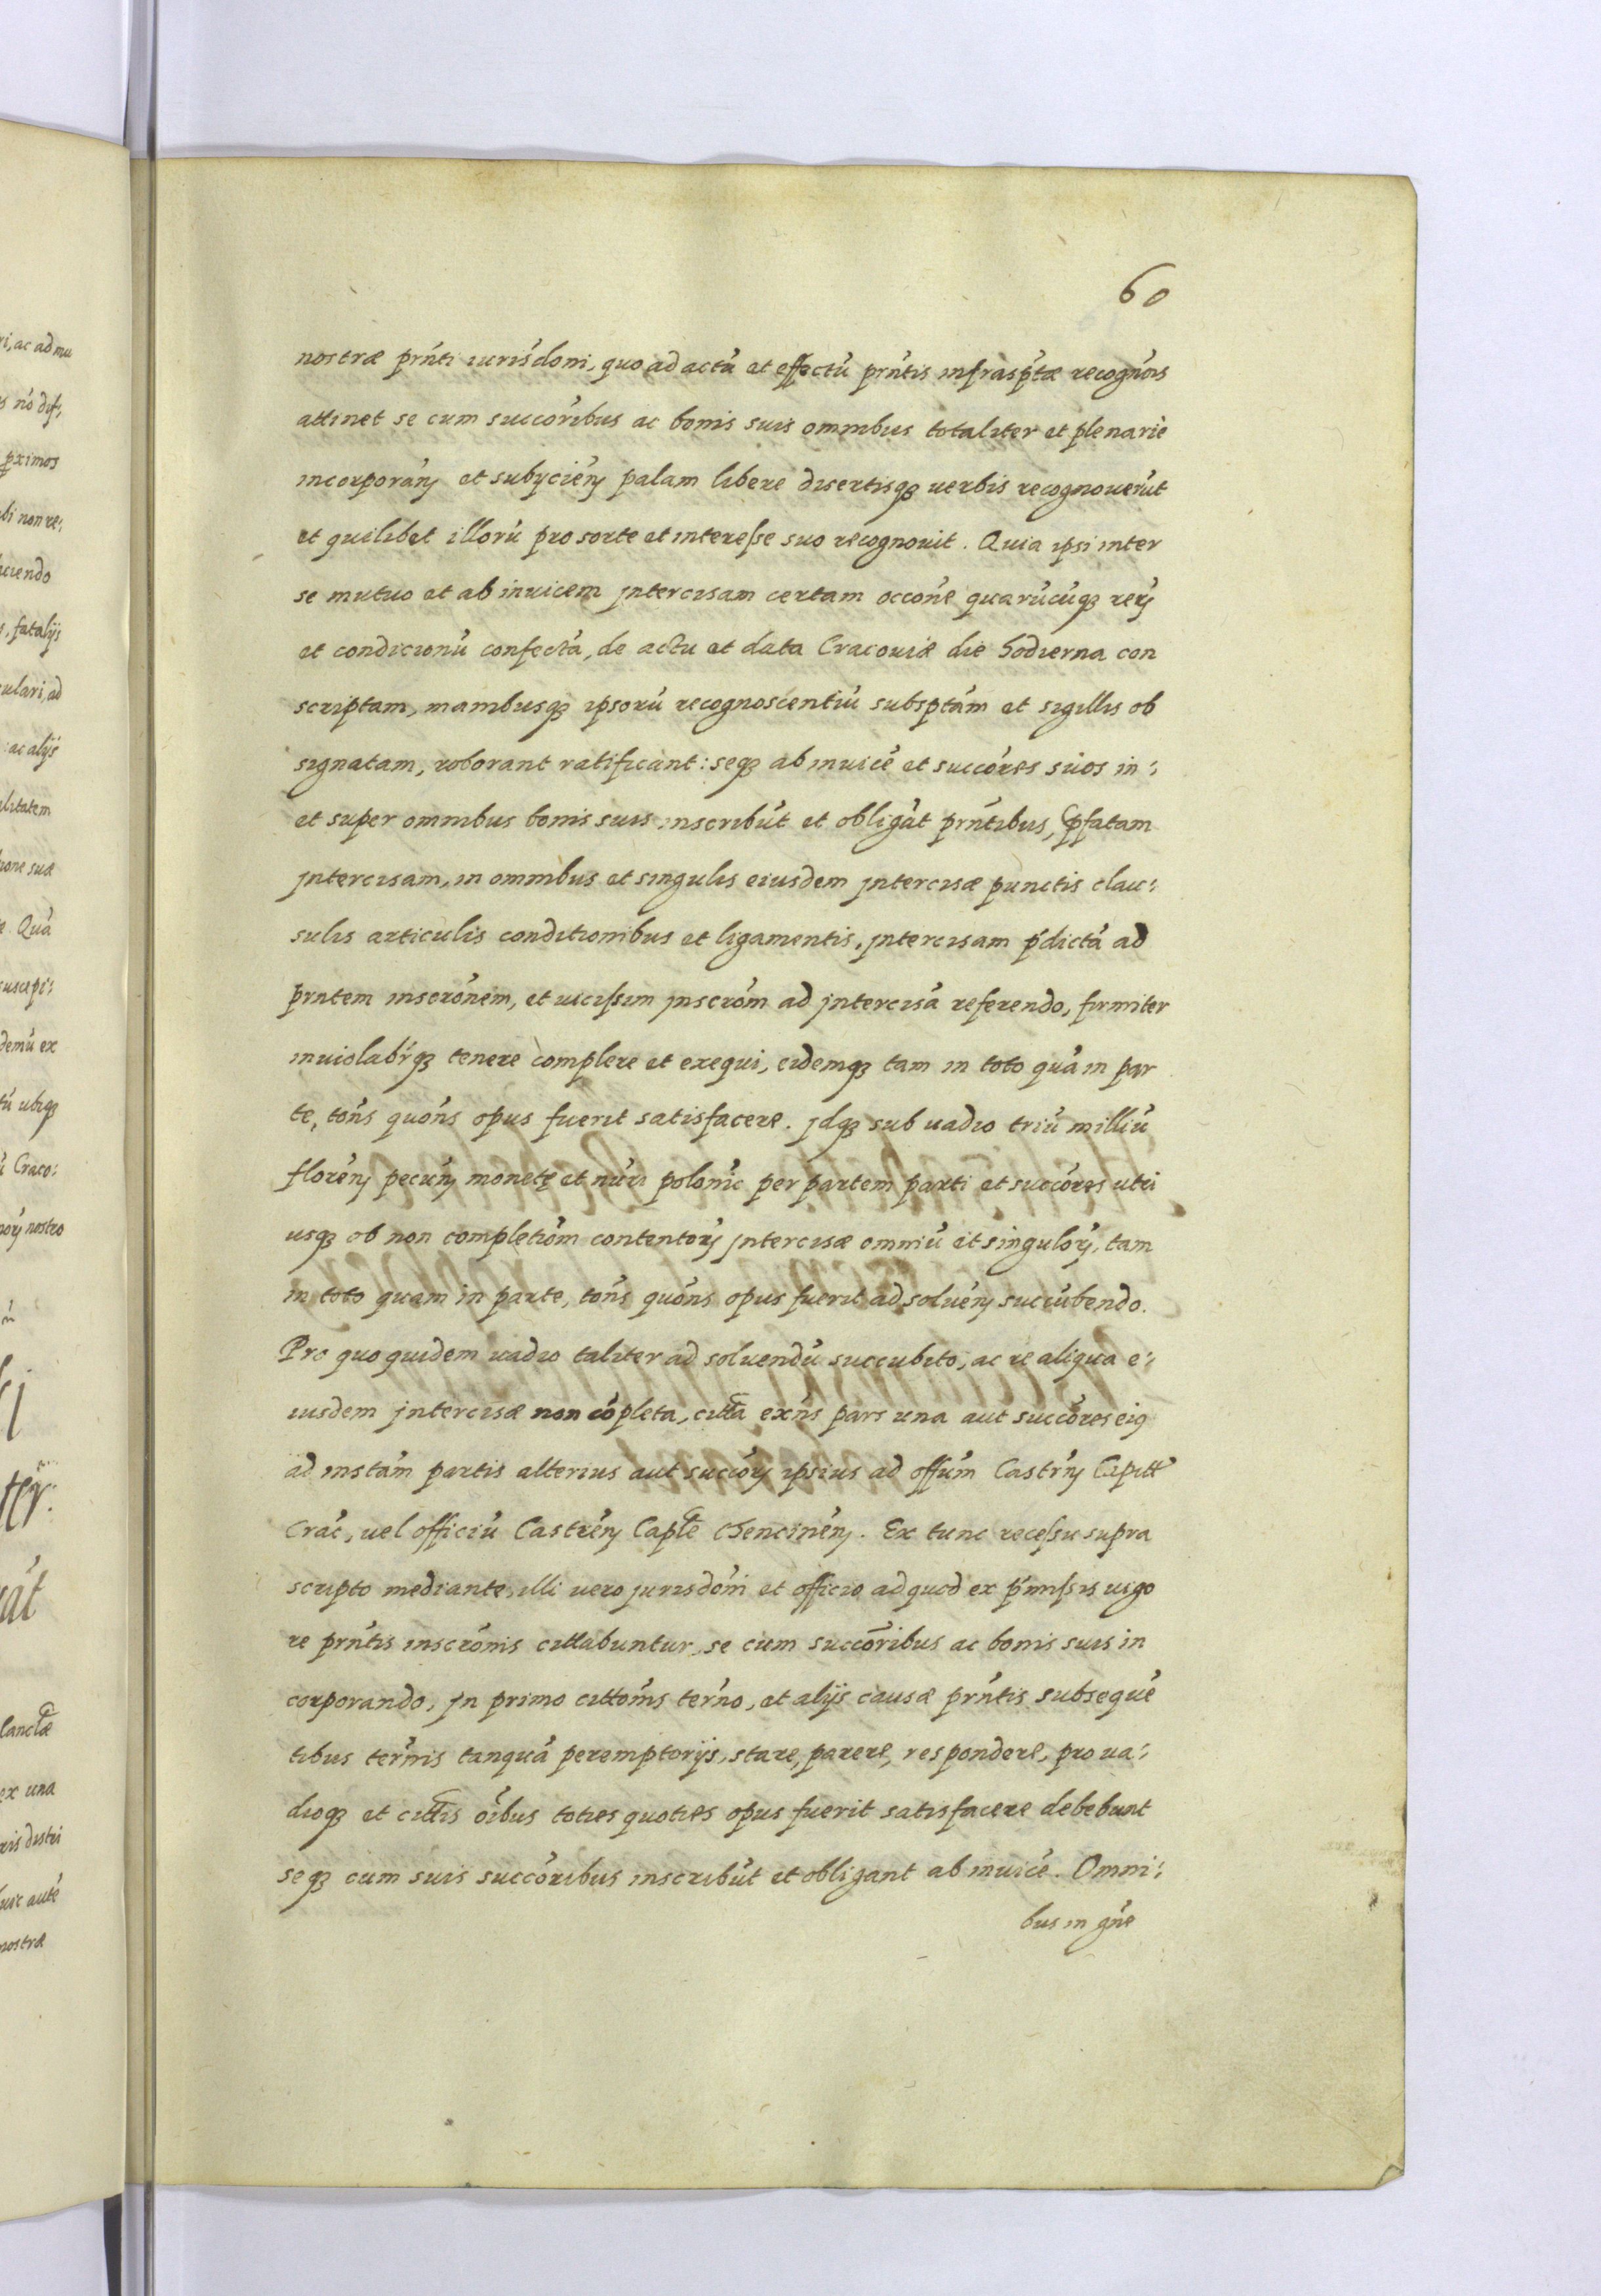 60
nostræ prńti iurisdoni, quo ad actū et effectū prńtis infrasptæ recognońis
attinet se cum succoribus ac bonis suis omnibus totaliter et plenarie
incorporanʒ et subÿcienʒ palam libere disertisqʒ uerbis recognouerūt
et quilibet illorū pro sorte et interesse suo recognouit. Quia ipsi inter
se mutuo et ab inuicem jntercisam certam occone quarūcūqʒ rerʒ
et condicionū confectā, de actu et data Cracouiæ die hodierna con
scriptam, manibusqʒ ipsorū recognoscentiū subsptam et sigillis ob
signatam, roborant ratificant: seqʒ ab inuicē et succores suos in:
et super omnibus bonis suis inscribūt et obligāt prńtibus, pfatam
jntercisam, in omnibus et singulis eiusdem jntercisæ punctis clau:
sulis articulis conditionibus et ligamentis, jntercisam pdictā ad
prntem inscrōnem, et uicissim jnscrōm ad jntercisā referendo, firmiter
inuiolabrqʒ tenere complere et exequi, eidemqʒ tam in toto quā in par
te, tońs quońs opus fuerit satisfacere. jdqʒ sub uadio triū milliū
florenʒ pecunʒ monetę et nūri polonic per partem parti et succores utri
usqʒ ob non completiōm contentorʒ jntercisæ omniū et singulorʒ, tam
in toto quam in parte, tońs quońs opus fuerit ad soluenʒ succūbendo.
Pro quo quidem uadio taliter ad soluendū succubito, ac re aliqua e:
iusdem jntercisæ non cōpleta, citta exńs pars una aut succores eiꝰ
ad instam partis alterius aut succorʒ ipsius ad offūm Castrnʒ Capitt
Crac, uel officiū Castrenʒ Caple Chencinenʒ. Ex tunc recessu supra
scripto mediante, illi uero jurisdoni et officio ad quod ex pmissis uigo
re prńtis inscrōnis cittabuntur, se cum succoribus ac bonis suis in
corporando, jn primo cittońis terńo, et alijs causæ prńtis subsequē
tibus termis tanquā peremptorijs, stare, parere, respondere, pro ua:
dioqʒ et cittis oībus toties quoties opus fuerit satisfacere debebunt
seqʒ cum suis succoribus inscribūt et obligant ab inuicē. Omni:
bus in gńe